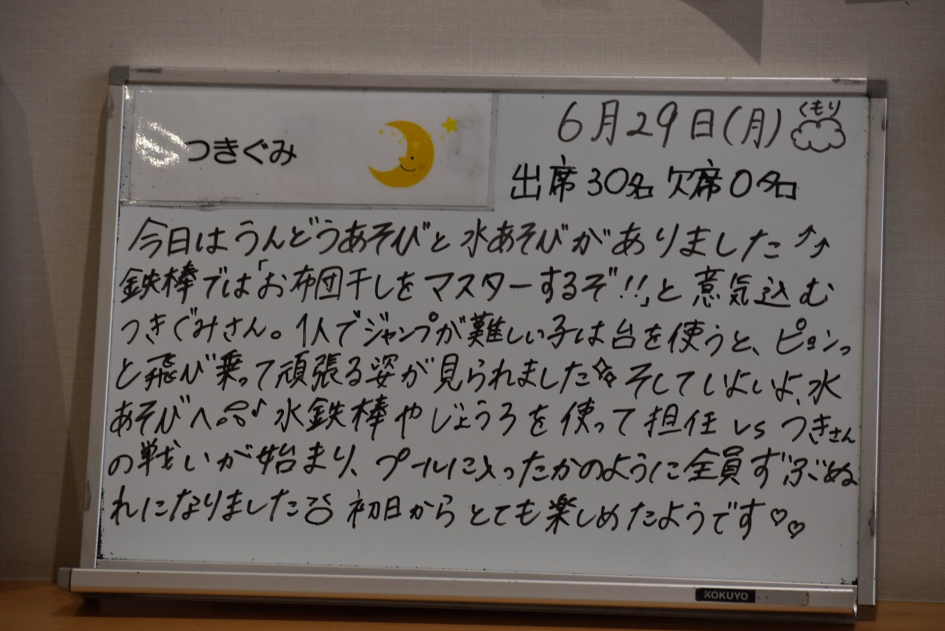 つきぐみ
6月29日(月)
くもり
出席30名 欠席0名
今日はうんどうあそびと水あそびがありました⤴⤴
鉄棒では「お布団干しをマスターするぞ!!」と意気込む
つきぐみさん。1人でジャンプが難しい子は台を使うと、ピョンっ
と飛び乗って頑張る姿が見られました☆ そしていよいよ、水
あそびへ♪ 水鉄棒やじょうろを使って担任 vs つきさん
の戦いが始まり、プールに入ったかのように全員ずぶぬ
れになりました 初日からとても楽しめたようです♡♡
KOKUYO